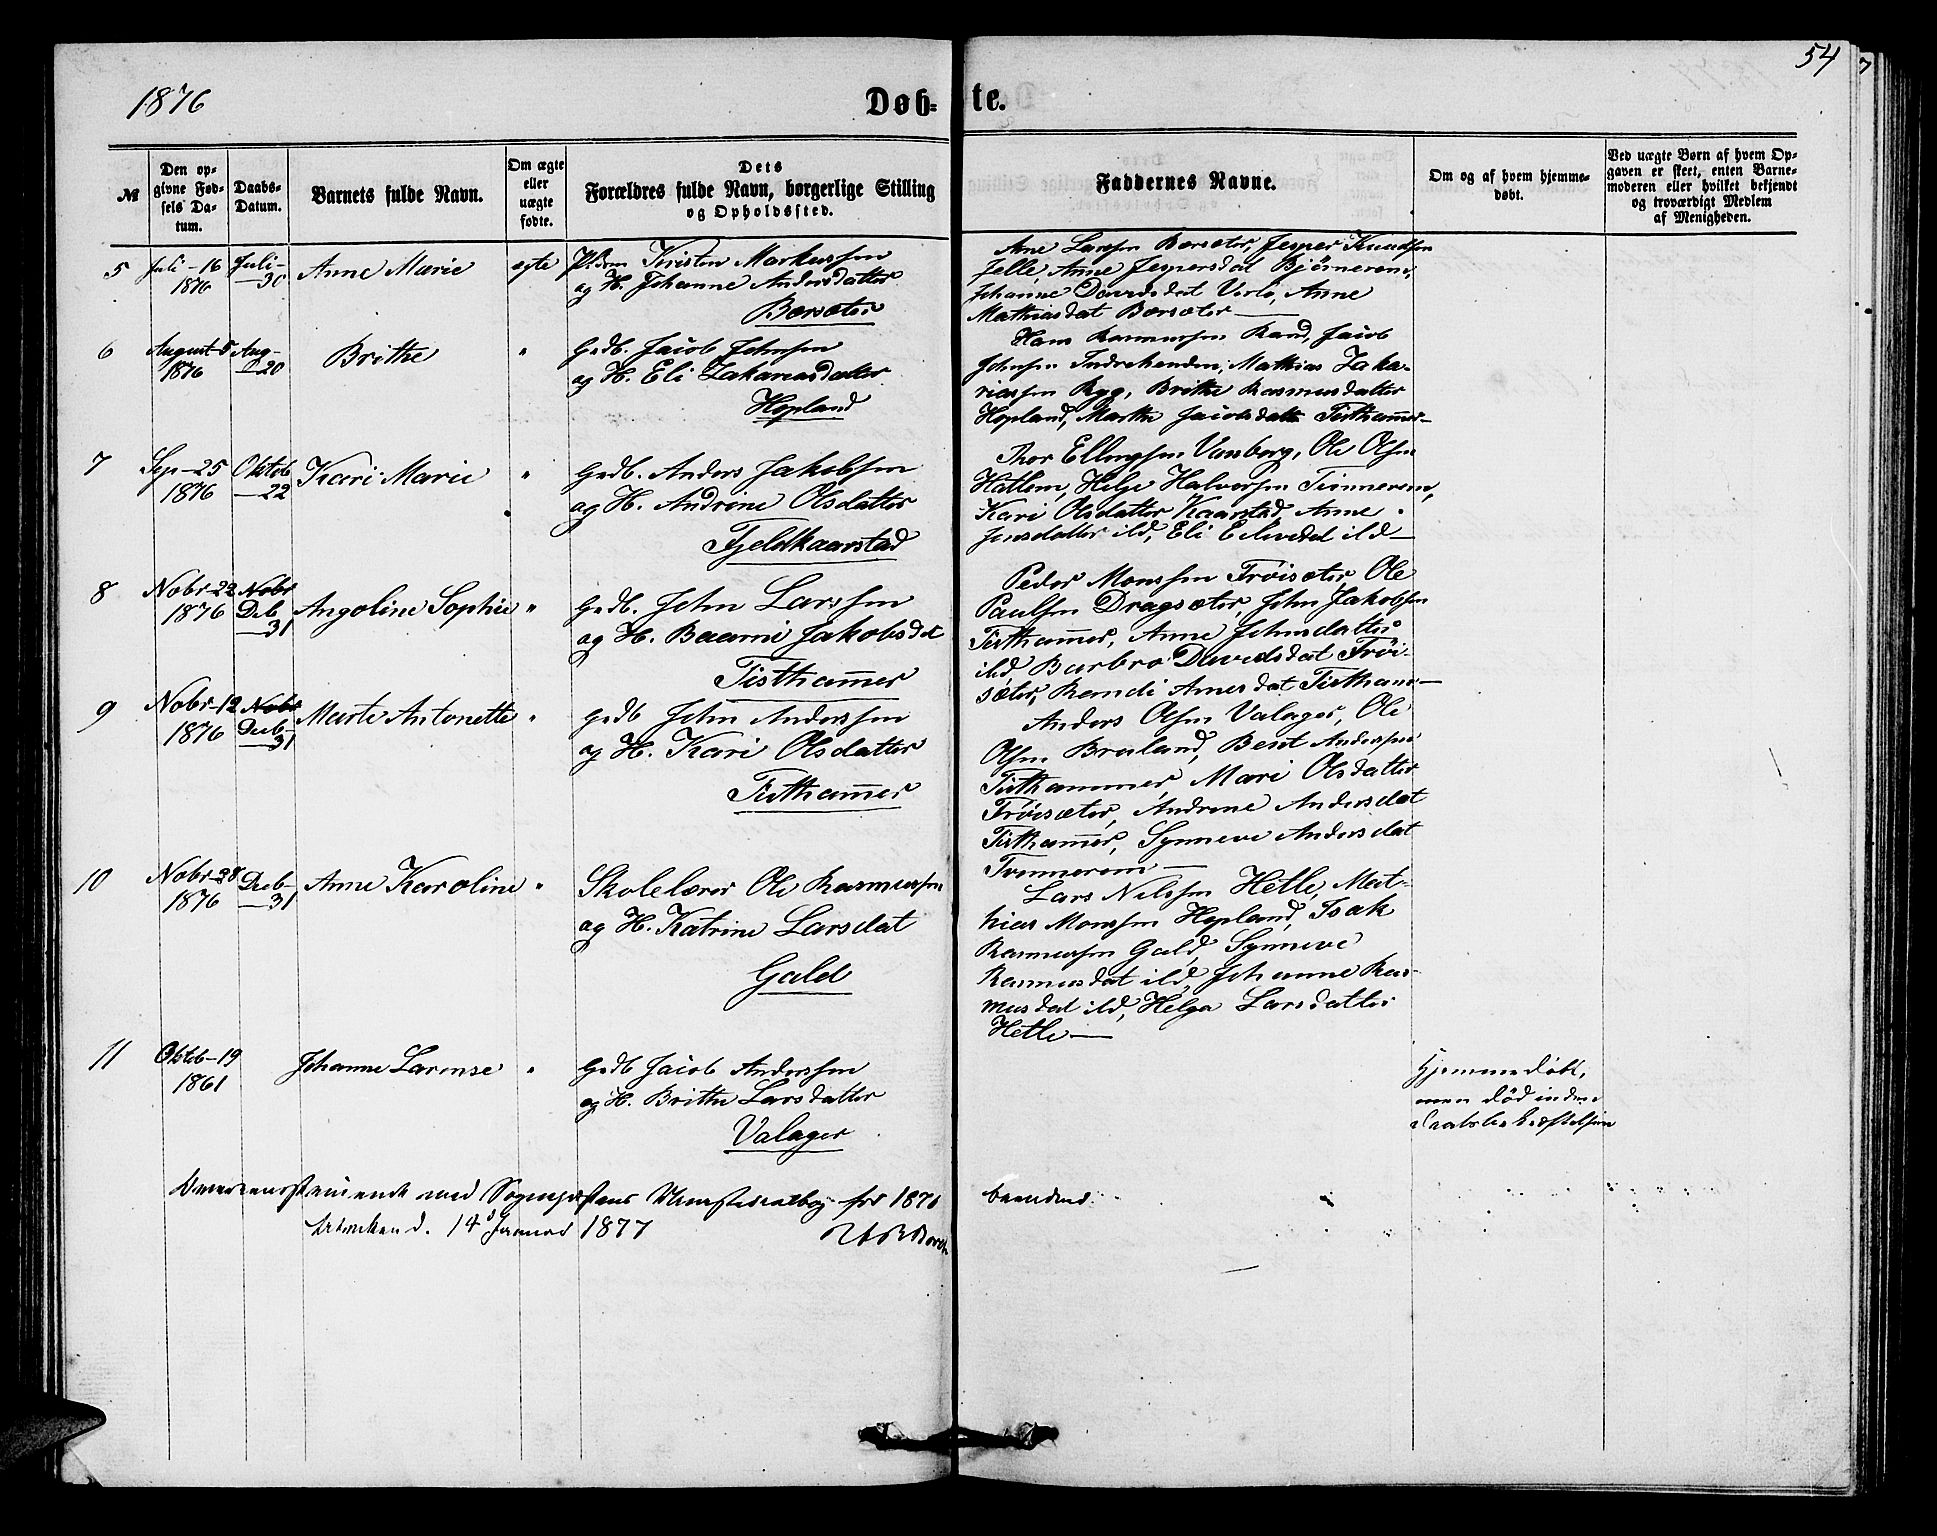 54
7
1876
Døb-
te.
№
Den op-
givne Fød-
sels Da-
tum.
Daabs-
Datum.
Barnets fulde Navn.
Om ægte
eller
uægte
fødte.
Dets
Forældres fulde Navn, borgerlige Stilling
og Opholdssted.
Faddernes Navne.
Om og af hvem hjemme-
døbt.
Ved uægte Børn af hvem Op-
gaven er skeet, enten Barne-
moderen eller hvilket bekjendt
og troværdigt Medlem
af Menigheden.
5
Juli-16
1876
Juli-
30
Anne Marie
egte
Kristen Markussen
og H. Johanne Andersdatter
Børsæter
Ane Larssen Børsæter, Jesper Knudsen
Jelle, Anne Jespersdat Bjørnerem,
Johanne Davidsdat Verlo, Anne
Mathiasdat Børsæter
6
August-5
1876
Aug-
20
Brithe
"
Grdb. Jacob Johnsen
og H. Eli Zakariasdatter
Hopland
Hans Rasmussen Rand, Jacob
Johnsen Indrehenden, Mathias Zaka-
riassen Ryg, Brithe Rasmusdatter
Hopland, Marthe Jacobsdatt Tisthammer
7
Sep-25
1876
Oktob
22
Kari Marie
"
Grdb. Anders Jakobsen
og H. Andrine Olsdatter
Fjeldkaarstad
Thor Ellingsen Vansberg, Ole Olsen
Hatlem, Helge Halvorsen Tvinnerem,
Kari Olsdatter Kaarstad, Anne
Jensdatter ild, Eli Eilivsdat ild
8
Nobr-22
1876
Nobr
Deb
31
Angoline Sophie
"
Grdb. John Larssen
og H. Baarni Jakobsdat
Tisthammer
Peder Monssen Frøisæter, Ole
Paulsen Dragsæter, John Jakobsen
Tisthammer, Anne Johnsdatter
ild, Barbro Davidsdat Frøi-
sæter, Randi Arnesdat Tistham
9
Nobr-12
1876
Nobr
Deb-
31
Marte Antonette
"
Grdb John Anderssen
og H. Kari Olsdatter
Tisthammer
Anders Olsen Valager, Ole
Olsen Bruland, Bent Anderssen
Tisthammer, Mari Olsdatter
Frøisæter, Andrine Andersdat
Tisthammer, Synneve Andersdat
Tvinnerem
10
Nobr-28
1876
Deb-
31
Anne Karoline
"
Skolelærer Ole Rasmussen
og H. Katrine Larsdat
Gald
Lars Nilssen Hetle, Mat-
hias Monssen Hopland, Isak
Rasmussen Gald, Synneve
Rasmusdat ild, Johanne Ras-
musdat ild, Helga Larsdatter
Hetle
11
Oktob-19
1861
Johanne Larense
"
Grdb Jacob Anderssen
og H. Brithe Larsdatter
Valager
Hjemmedøbt,
men død inden
Daabsbekræftelsen
Overensstemmende med Sognepræstens Ministerialbog for 1876
befundend.
14 Januar 1877